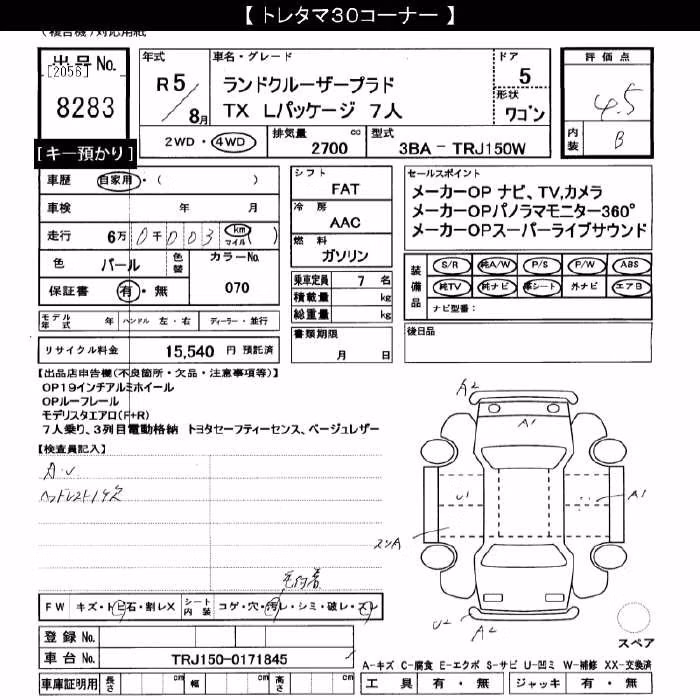 【 トレタマ30コーナー 】
(複合機)対応用紙
出品No.
[2056]
8283
[キー預かり]
年式
R5/8月
車名・グレード
ランドクルーザープラド
TX Lパッケージ 7人
ドア
5
形状
ワゴン
評価点
4.5
内装
B
2WD・4WD
排気量
2700 cc
型式
3BA - TRJ150W
車歴 自家用・( )
車検 年 月
走行 6万 0千003 km マイル )
色 パール 色替
カラーNo.
070
保証書 有・無
シフト
FAT
冷房
AAC
燃料
ガソリン
乗車定員 7 名
積載量 kg
総重量 kg
書類期限
月 日
セールスポイント
メーカーOP ナビ、TV,カメラ
メーカーOPパノラマモニター360°
メーカーOPスーパーライブサウンド
装備品
S/R 純A/W P/S P/W ABS
純TV 純ナビ 革シート 外ナビ エアB
ナビ型番：
後日品
モデル年式 年 ハンドル 左・右 ディーラー・並行
リサイクル料金 15,540 円 預託済
【出品店申告機(不良箇所・欠品・注意事項等)】
OP19インチアルミホイール
OPルーフレール
モデリスタエアロ(F+R)
7人乗り、3列目電動格納 トヨタセーフティーセンス、ベージュレザー
【検査員記入】
A・U
ヘッドレスト1ケ欠
毛付着
FW キズ・トビ石・割レX シート内装 コゲ・穴・汚レ・シミ・破レ・スレ
登録 No.
車台 No. TRJ150-0171845
車庫証明用 長さ cm 幅 cm 高さ cm
A2
A1
U1
A1
スリA
U2
A2
スペア
A-キズ C-腐食 E-エクボ S-サビ U-凹ミ W-補修 XX-交換済
工具 有・無 ジャッキ 有・無